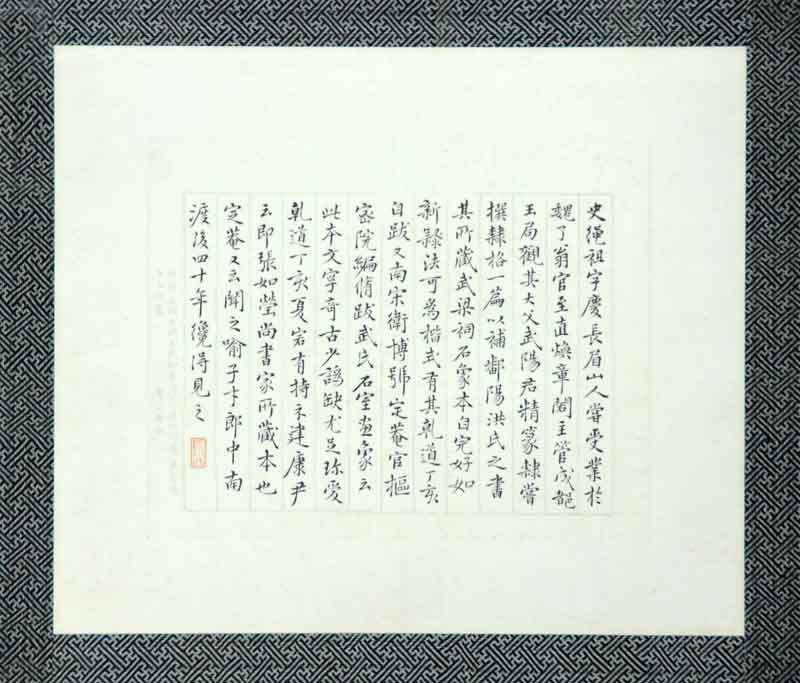 史繩祖字慶長眉山人嘗受業於
魏了翁官至直煥章閣主管成都
玉局觀其大父武陽君精篆隸嘗
撰隸格一篇以補鄱陽洪氏之書
其所藏武梁祠石象本白完好如
新隸法可為楷式有其乾道丁亥
自跋又南宋衛博號定菴官樞
密院編脩跋武氏石室畫象云
此本文字奇古少譌缺尤足珍愛
乾道丁亥夏宕有持示建康尹
云即張如瑩尚書家所藏本也
定菴又云聞之喻子才郎中南
渡後四十年纔得見之